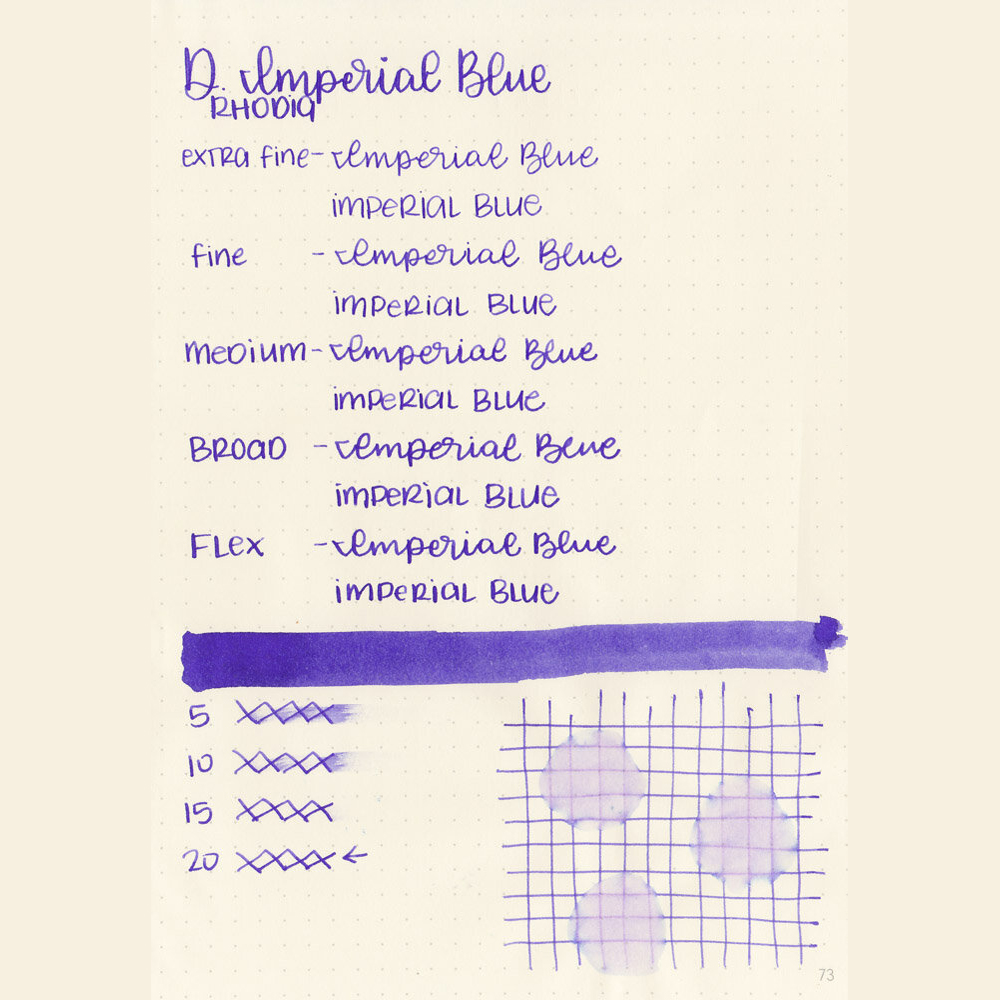 D. Imperial Blue
RHODIA
extra fine - Imperial Blue
imperial Blue
fine - Imperial Blue
imperial Blue
medium - Imperial Blue
imperial Blue
BROAD - Imperial Blue
imperial Blue
FLex - Imperial Blue
imperial Blue
5 XXXX
10 XXXX
15 XXXX
20 XXXX ←
73